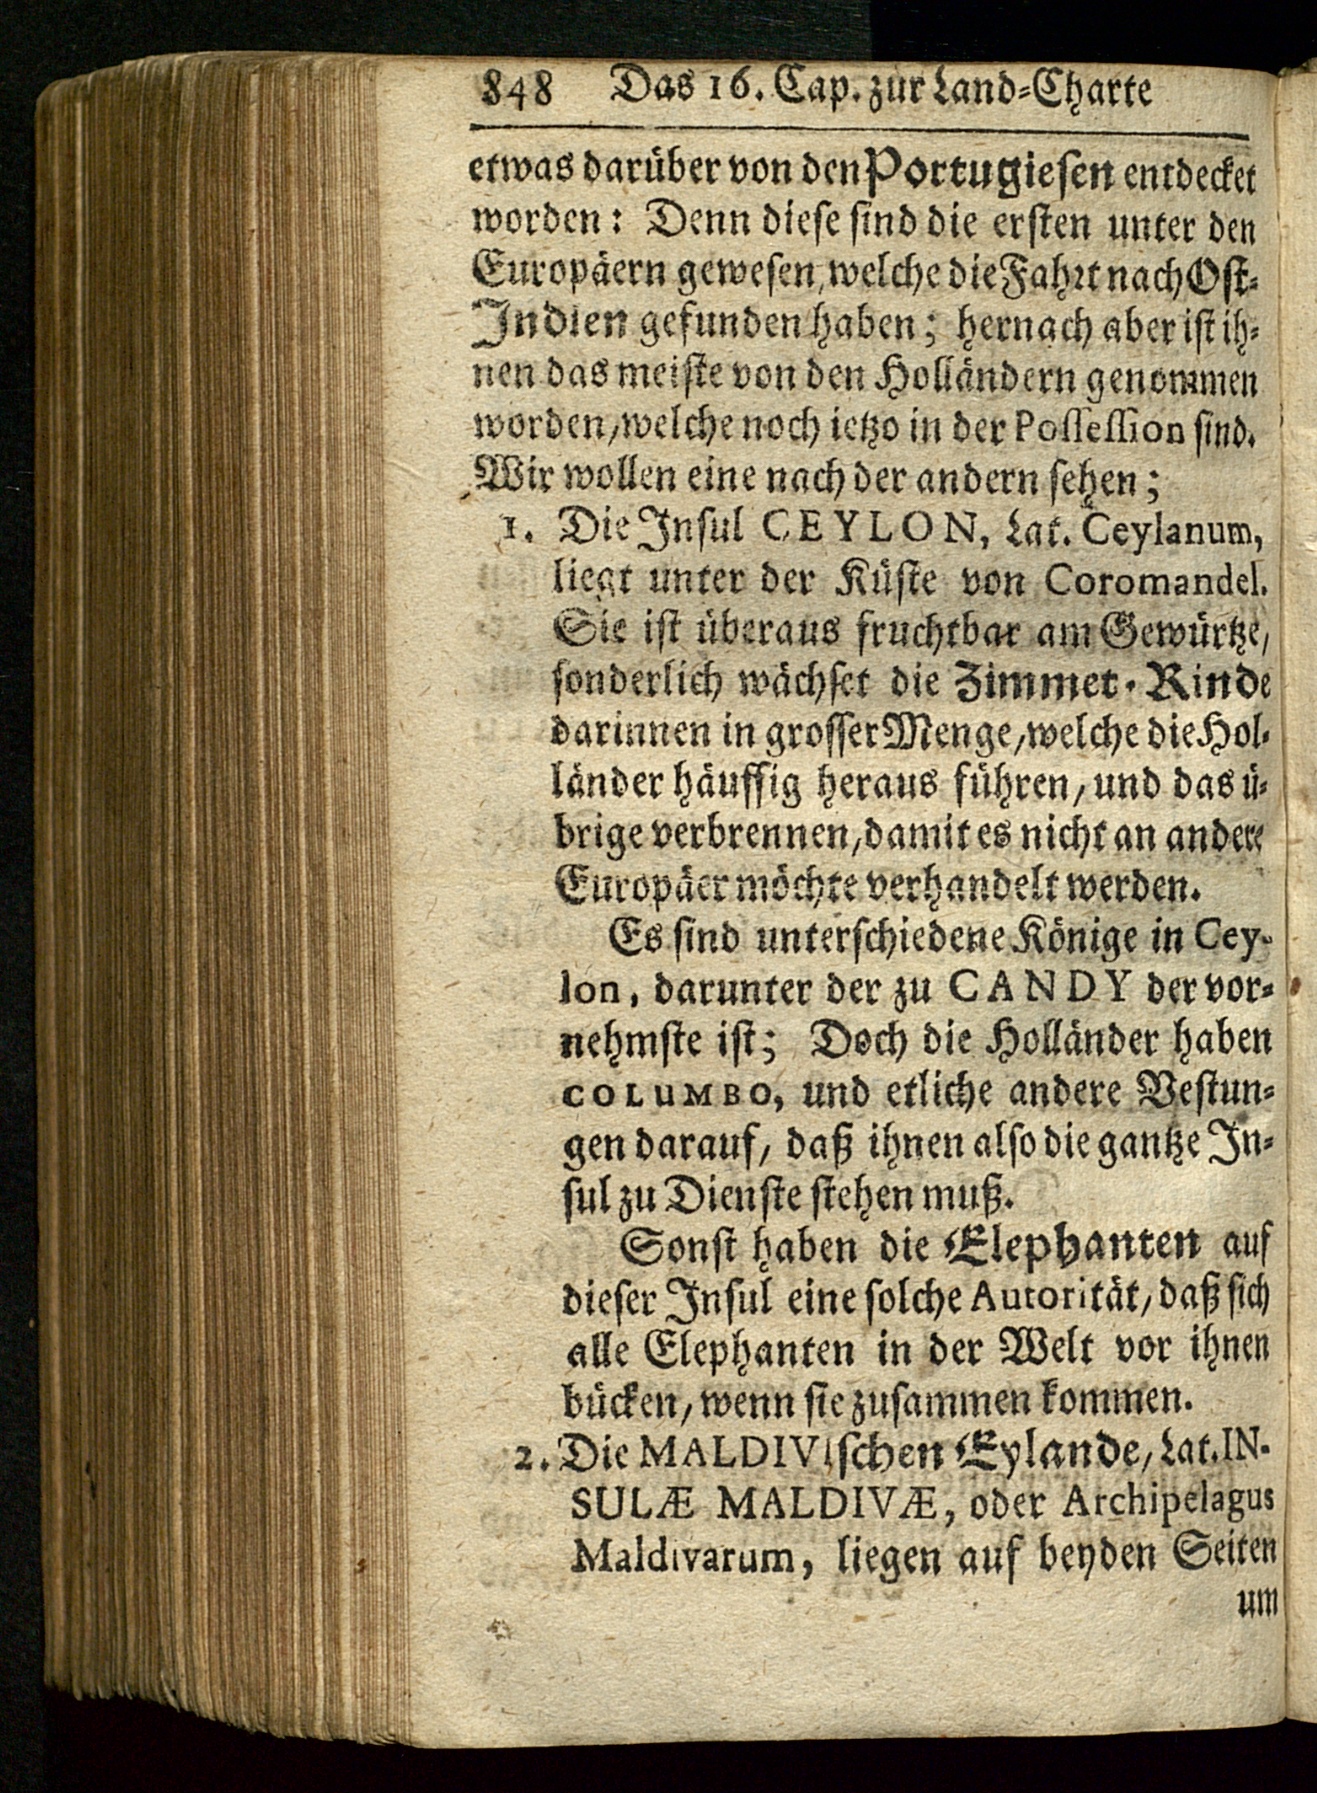 848 Das 16. Cap. zur Land-Charte
etwas darüber von den Portugiesen entdecket
worden: Denn diese sind die ersten unter den
Europäern gewesen, welche die Fahrt nach Ost-
Indien gefunden haben; hernach aber ist ih-
nen das meiste von den Holländern genommen
worden, welche noch ietzo in der Possession sind.
Wir wollen eine nach der andern sehen;
1. Die Insul CEYLON, Lat. Ceylanum,
liegt unter der Küste von Coromandel.
Sie ist überaus fruchtbar am Gewürtze,
sonderlich wächset die Zimmet-Rinde
darinnen in grosser Menge, welche die Hol-
länder häuffig heraus führen, und das ü-
brige verbrennen, damit es nicht an andere
Europäer möchte verhandelt werden.
Es sind unterschiedene Könige in Cey-
lon, darunter der zu CANDY der vor-
nehmste ist; Doch die Holländer haben
COLUMBO, und etliche andere Vestun-
gen darauf, daß ihnen also die gantze In-
sul zu Dienste stehen muß.
Sonst haben die Elephanten auf
dieser Insul eine solche Autorität, daß sich
alle Elephanten in der Welt vor ihnen
bücken, wenn sie zusammen kommen.
2. Die MALDIVischen Eylande, Lat. IN-
SULÆ MALDIVÆ, oder Archipelagus
Maldivarum, liegen auf beyden Seiten
um